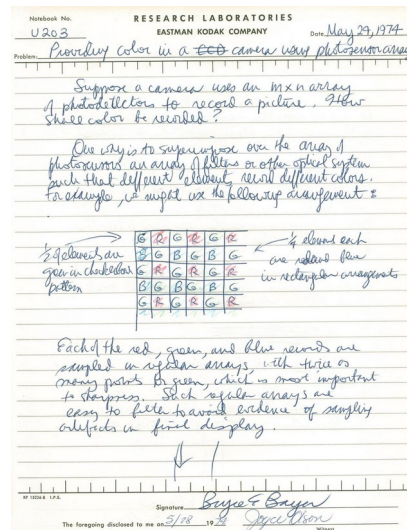 Notebook No.
U203
RESEARCH LABORATORIES
EASTMAN KODAK COMPANY
Date May 29, 1974
Problem: Providing color in a CCD camera using photosensor array
Suppose a camera uses an m x n array
of photodetectors to record a picture. How
shall color be recorded?
One way is to superimpose over the array of
photosensors an array of filters or other optical system
such that different elements record different colors.
For example, we might use the following arrangement:
½ of elements are
green in checkerboard
pattern
G R G R G R
B G B G B G
G R G R G R
B G B G B G
G R G R G R
¼ element each
are red and blue
in rectangular arrangements
Each of the red, green, and blue records are
sampled in regular arrays, with twice as
many points for green, which is most important
to sharpness. Such regular arrays are
easy to filter to avoid evidence of sampling
artifacts in final display.
Signature Bryce E Bayer
The foregoing disclosed to me on 5/28 19 Joyce Olson
Witness